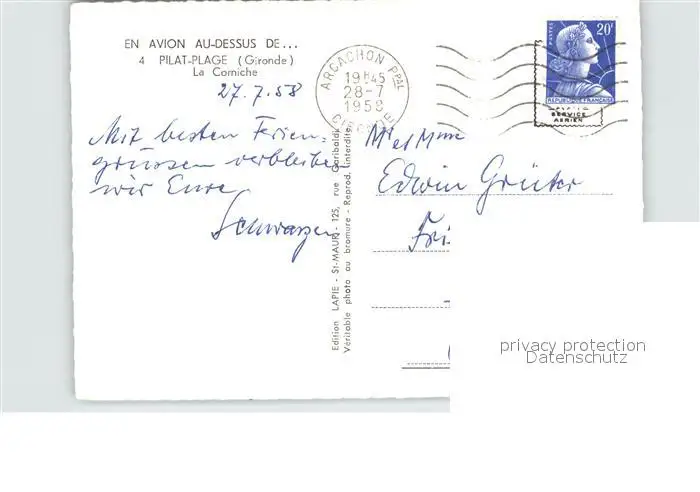 EN AVION AU-DESSUS DE...
4 PILAT-PLAGE (Gironde)
La Corniche
27.7.58
Mit besten Ferien-
grüssen verbleiben
wir Eure
Schwarzen
Edition LAPIE - St-MAUR - 125, rue Garibaldi
Véritable photo au bromure - Reprod. interdite
ARCACHON PPAL
19H45
28-7
1958
GIRONDE
20F
POSTES
REPUBLIQUE FRANÇAISE
SERVICE
AERIEN
M et Mme
Edwin Grüter
Fri
privacy protection
Datenschutz